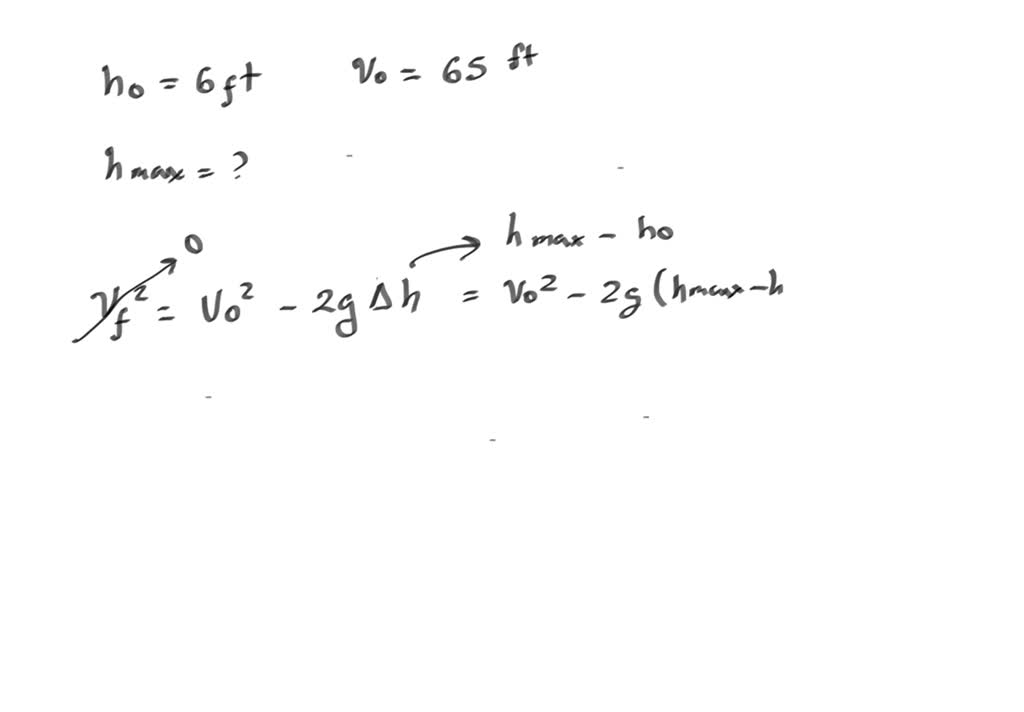 h₀ = 6 ft V₀ = 65 ft
h max = ?
0 h max - h₀
V_f² = V₀² - 2g Δh = V₀² - 2g (hmax - h